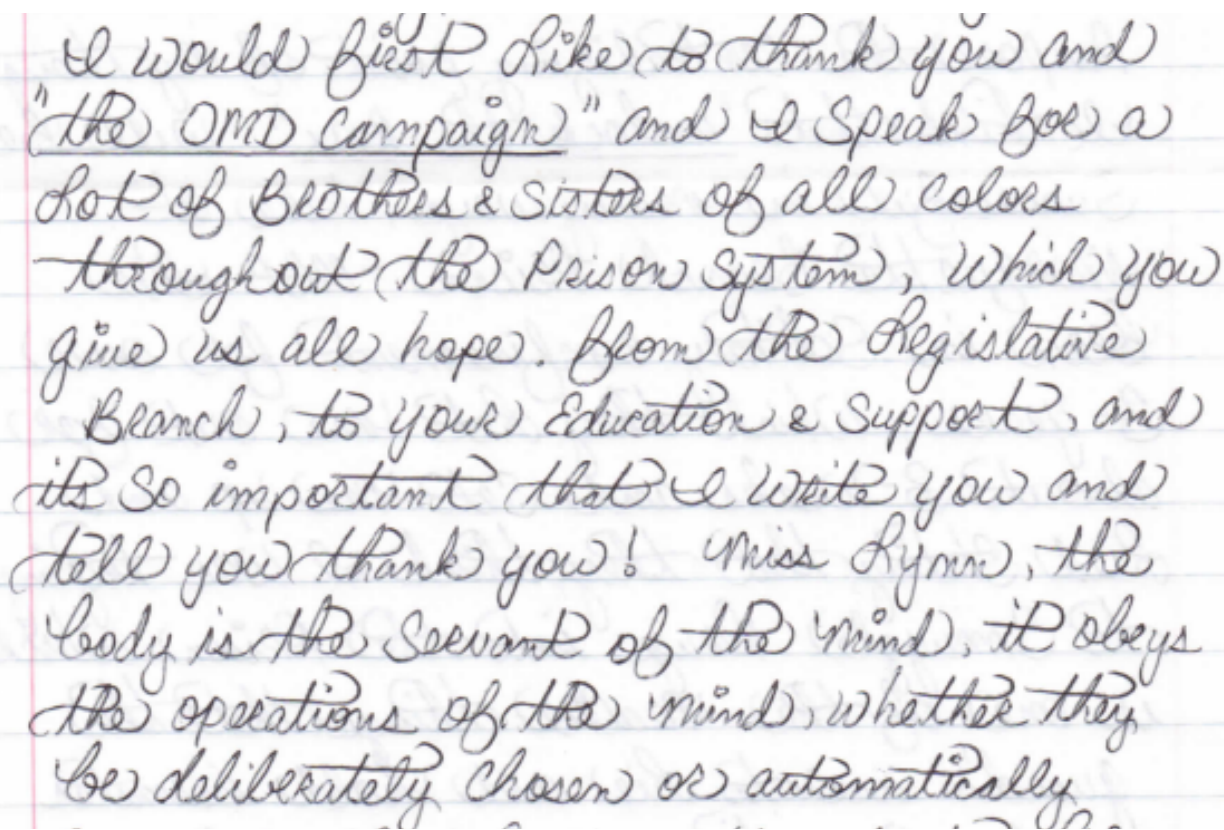 I would first Like to thank you and
"the OMD Campaign" and I Speak for a
Lot of Brothers & Sisters of all Colors
throughout the Prison System, Which you
give us all hope. from the Legislative
Branch, to your Education & Support, and
its So important that I write you and
tell you thank you! Miss Lynn, the
body is the Servant of the mind, it obeys
the operations of the mind, whether they
be deliberately Chosen or automatically